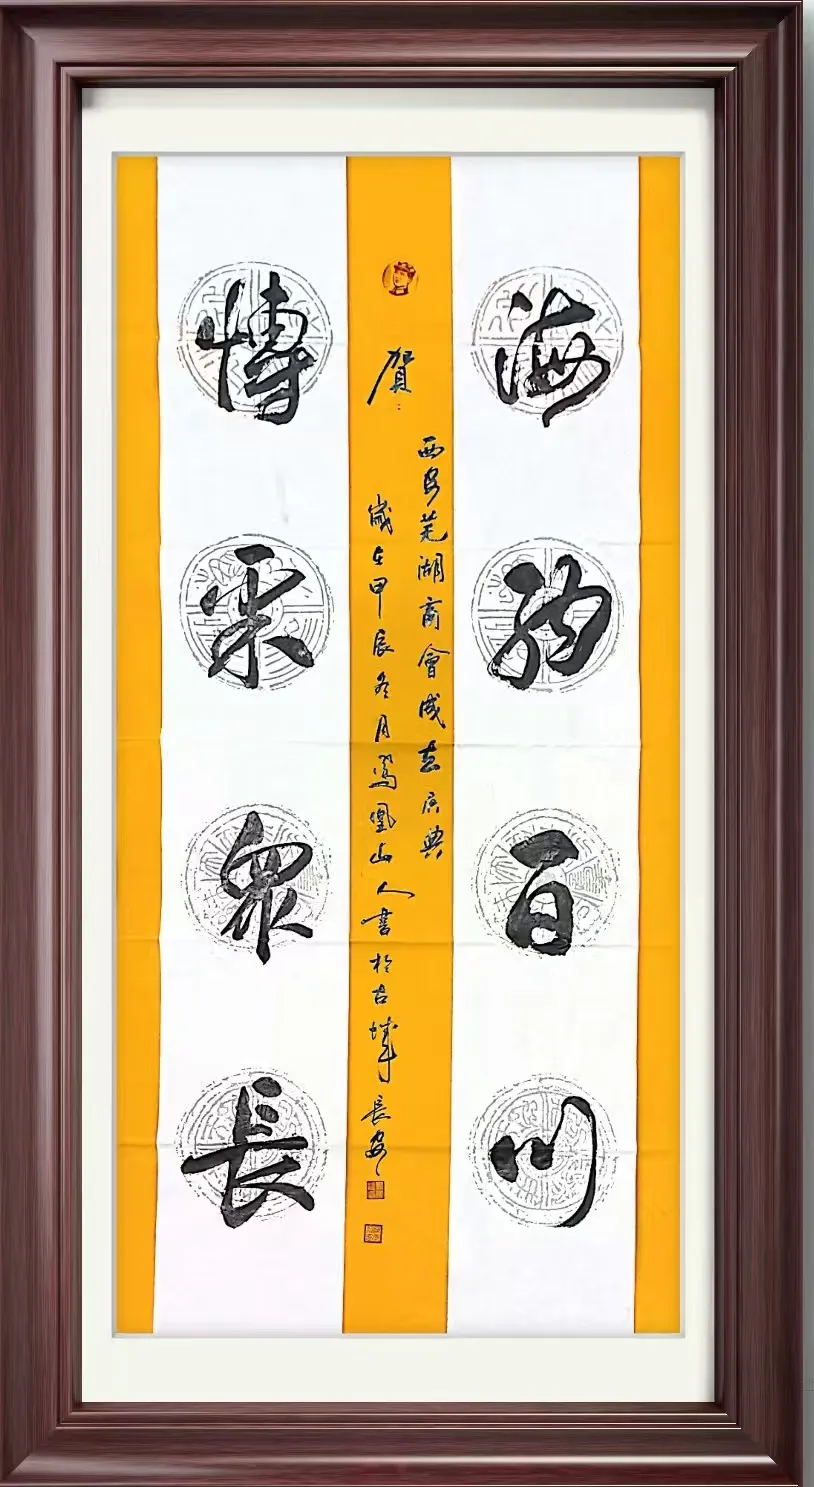 海納百川
愽采眾長
賀:
西安芜湖商會成立庆典
歲在甲辰冬月鳳凰山人書於古城長安